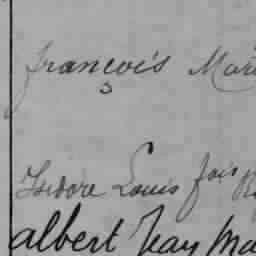 françois Mar
Isidore Louis fois
albert Jean Ma